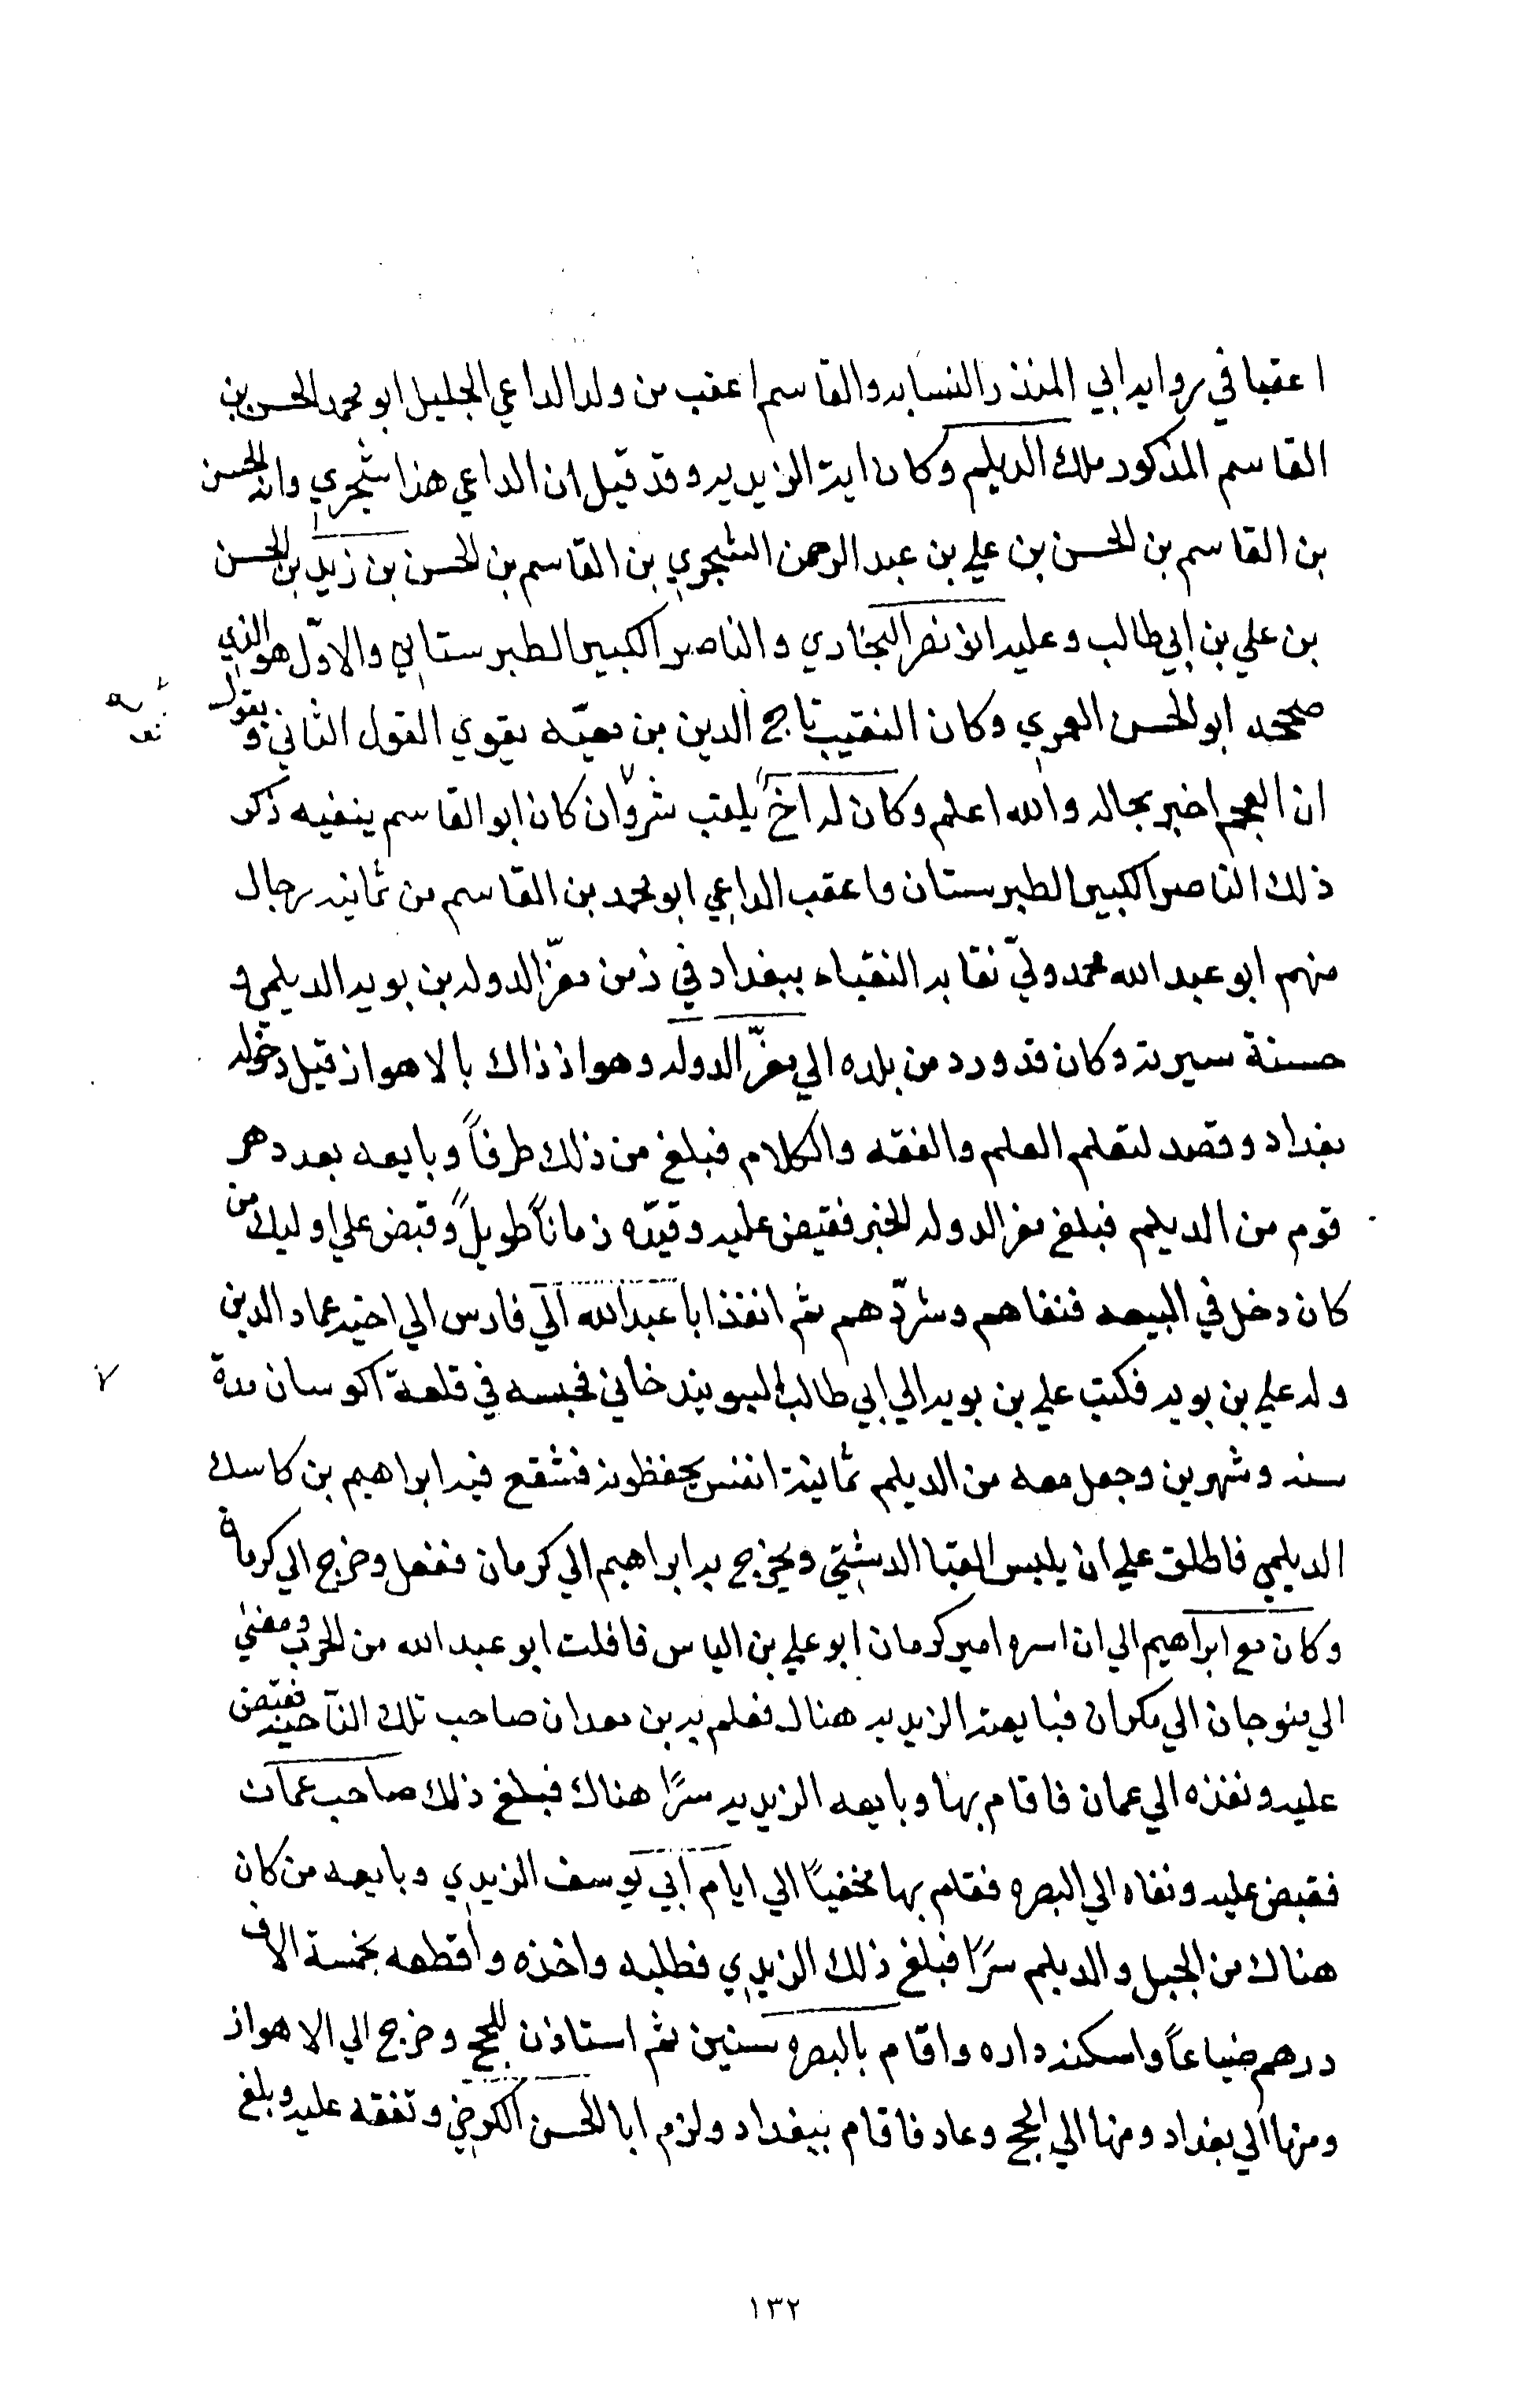 اعقبا في روايه ابي المنذر النسابه والقاسم اعقب من ولد الداعي الجليل ابو محمد الحسن بن
القاسم المذكور ملك الديلم وكان ايمة الزيديه وقد قيل ان الداعي هذا شجري وانه الحسن
بن القاسم بن الحسن بن علي بن عبد الرحمن الشجري بن القاسم بن الحسن بن زيد بن الحسن
بن علي بن ابي طالب وعليه ابو نصر البخاري والناصر الكبير الطبرستاني والاوّل هو الذي
صححه ابو الحسن العمري وكان النقيب تاج الدين بن معيّه يقوي القول الثاني ويقول
ان العجم اخبر بحاله والله اعلم وكان له اخ يلقب شروان كان ابو القاسم ينفيه ذكر
ذلك الناصر الكبير الطبرستان واعقب الداعي ابو محمد بن القاسم من ثمانيه رجال
منهم ابو عبد الله محمد وليّ نقابه النقباء ببغداد في زمن معزّ الدوله بن بويه الديلمي و
حسنة سيرته وكان قد ورد من بلده الي معزّ الدوله وهو اذ ذاك بالاهواز قبل دخوله
بغداد وقصد لتعلم العلم والفقه والكلام فبلغ من ذلك طرفاً وبايعه بعد دهر
قوم من الديلم فبلغ معز الدوله الخبر فقبض عليه وقيّده زماناً طويلاً وقبض علي اوليك من
كان دخل في البيعه فنفاهم وشرّدهم ثم انفذ ابا عبد الله الي فارس الي اخيه عماد الدين
وله علي بن بويه فكتب علي بن بويه الي ابي طالب فحبسه في قلعة اكوسان مدة
سنه وشهرين وجعل معه من الديلم ثمانية انفس يحفظونه فشفع فيه ابراهيم بن كاسك
الديلمي فاطلق علي ان يلبس القبا الدشتي ويخرج به ابراهيم الي كرمان ففعل وخرج الي كرمان
وكان مع ابراهيم الي ان اسره امير كرمان ابو علي بن الياس فافلت ابو عبد الله من الحرب ومضي
الي منوجان الي مكران فبايعته الزيديه هناك فعلم به بن معدان صاحب تلك النّاحيه فقبض
عليه ونفذه الي عمان فاقام بها وبايعه الزيديه سرًا هناك فبلغ ذلك صاحب عمان
فقبض عليه ونفاه الي البصره فقام بها مخفياً الي ايام ابي يوسف الزيدي وبايعه من كان
هناك من الجبل والديلم سرًا فبلغ ذلك الزيدي فطلبه واخذه واقطعه بخمسة الاف
درهم ضياعاً واسكنه داره واقام بالبصره سنين ثم استاذن للحج وخرج الي الاهواز
ومنها الي بغداد ومنها الي الحج وعاد فاقام ببغداد ولزم ابا الحسن الكرخي وتفقه عليه وبلغ
١٣٢